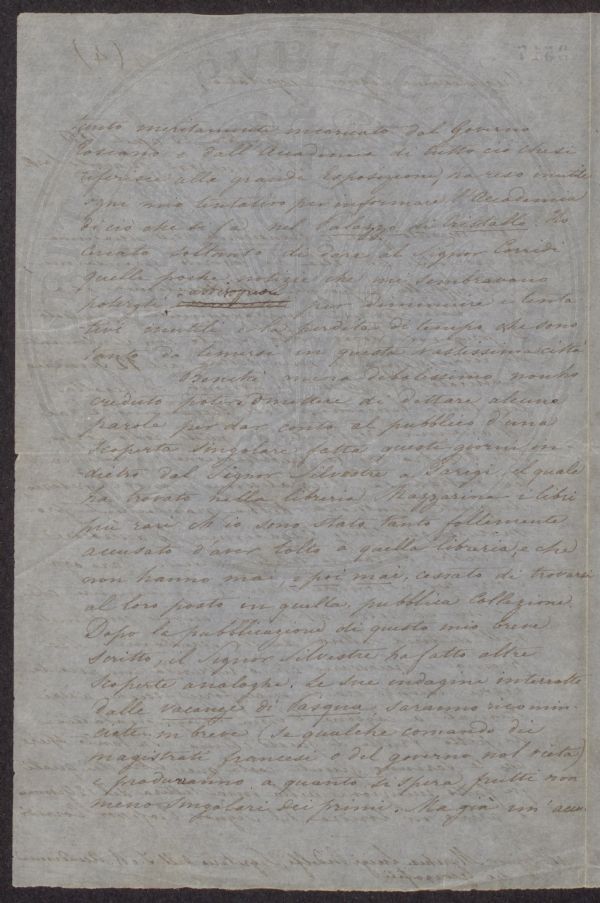 (4)
tanto meritamente incaricato dal Governo
Toscano e dall'Accademia di tutto ciò che si
riferisce alla grande Esposizione, ha reso inutile
ogni mio tentativo per informare l'Accademia
di ciò che si fa nel Palazzo di Cristallo. Ho
cercato soltanto di dare al Signor Corridi
quelle poche notizie che mi sembravano
potergli per diminuire i tenta
tivi inutili e la perdita di tempo che sono
tanto da temersi in questa vastissima città
Benchè debolissimo non ho
creduto poter omettere di dettare alcune
parole per dar conto al pubblico d'una
scoperta singolare fatta questi giorni in-
dietro dal Signor Silvestre a Parigi, il quale
ha trovato nella libreria Mazzarina i libri
più rari ch'io sono stato tanto follemente
accusato d'aver tolto a quella libreria, e che
non hanno mai, e poi mai, cessato di trovarsi
al loro posto in quella pubblica Collezione.
Dopo la pubblicazione di questo mio breve
scritto, il Signor Silvestre ha fatto altre
scoperte analoghe. Le sue indagini interrotte
dalle vacanze di Pasqua, saranno ricomin-
ciate in breve (se qualche comando dei
magistrati francesi o del governo nol vieta)
e produrranno a quanto si spera frutti non
meno singolari dei primi. Ma già un'accu-